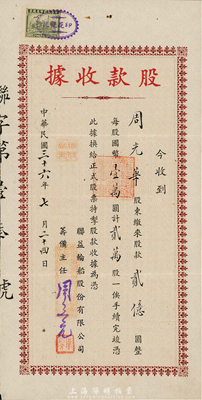 股款收據
今收到
周光華 股東繳來股款 貳億 圓整
每股國幣 壹萬 圓計 貳萬 股一俟手續完竣憑
此據換給正式股票特掣股款收據為憑
聯益輪船股份有限公司
籌備主任
中華民國三十六年 七 月二十四日
聯字第 號